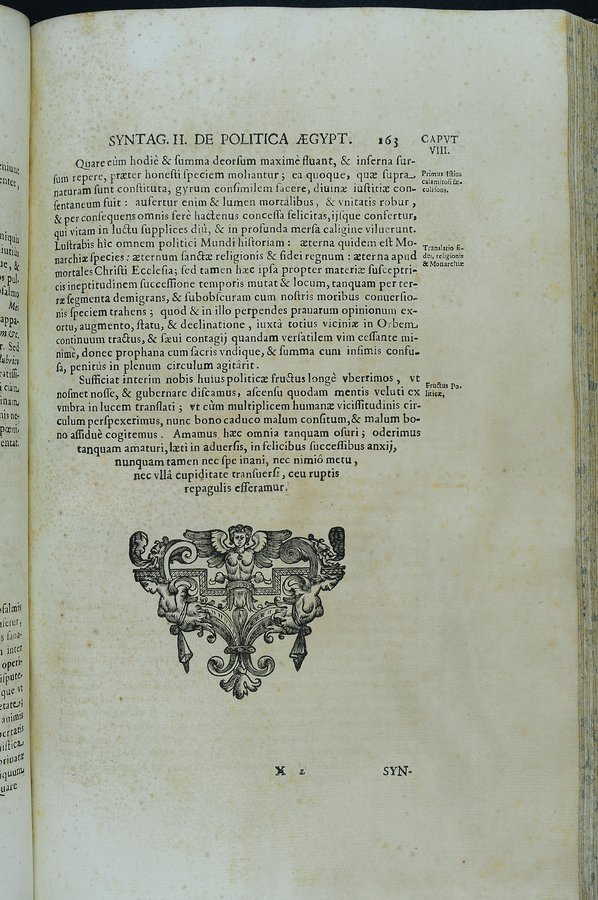 SYNTAG. II. DE POLITICA ÆGYPT. 163 CAPVT VIII.
Quare cùm hodiè & summa deorsum maximè fluant, & inferna sur-
sum repere, præter honesti speciem moliantur; ea quoque, quæ supra
naturam sunt constituta, gyrum consimilem facere, diuinæ iustitiæ con-
sentaneum fuit: aufertur enim & lumen mortalibus, & vnitatis robur,
& per consequens omnis ferè hactenus concessa felicitas, ijsque confertur,
qui vitam in luctu supplices diù, & in profunda mersa caligine viluerunt.
Lustrabis hic omnem politici Mundi historiam: æterna quidem est Mo-
narchiæ species: æternum sanctæ religionis & fidei regnum: æterna apud
mortales Christi Ecclesia; sed tamen hæc ipsa propter materiæ susceptri-
cis ineptitudinem successione temporis mutat & locum, tanquam per ter-
ræ segmenta demigrans, & subobscuram cum nostris moribus conuersio-
nis speciem trahens; quod & in illo perpendes prauarum opinionum ex-
ortu, augmento, statu, & declinatione, iuxtà totius viciniæ in Orbem
continuum tractus, & sæui contagij quandam versatilem vim cessante mi-
nimè, donec prophana cum sacris vndique, & summa cum infimis confu-
sa, penitùs in plenum circulum agitârit.
Sufficiat interim nobis huius politicæ fructus longè vberrimos, vt
nosmet nosse, & gubernare discamus, ascensu quodam mentis veluti ex
vmbra in lucem translati; vt cùm multiplicem humanæ vicissitudinis cir-
culum perspexerimus, nunc bono caduco malum consitum, & malum bo-
no assiduè cogitemus. Amamus hæc omnia tanquam osuri; oderimus
tanquam amaturi, læti in aduersis, in felicibus successibus anxij,
nunquam tamen nec spe inani, nec nimiò metu,
nec vllâ cupiditate transuersi, ceu ruptis
repagulis efferamur.
Primus istius
calamitosi se-
culi fons.
Translatio fi-
dei, religionis
& Monarchiæ
Fructus Po-
liticæ,
X 2 SYN-
eniunt
entes,
niquii
iutiis
s pul-
salmo
Mel
appa-
r. Sed
lubrico
ratiss-
i cum
inam,
nis ne-
poeni,
entat.
salmis
scetur,
s sana-
inter
operi-
ispute-
que vt
etate;
animis
ertatis
iistica
priuatæ
iquum
uare